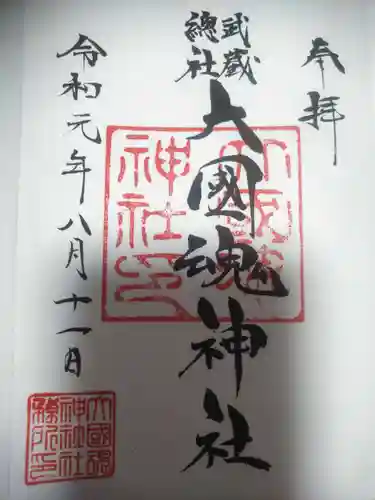 奉拝
武蔵
總社
大國魂神社
令和元年八月十一日
大國魂
神社印
大國魂
神社
務所印